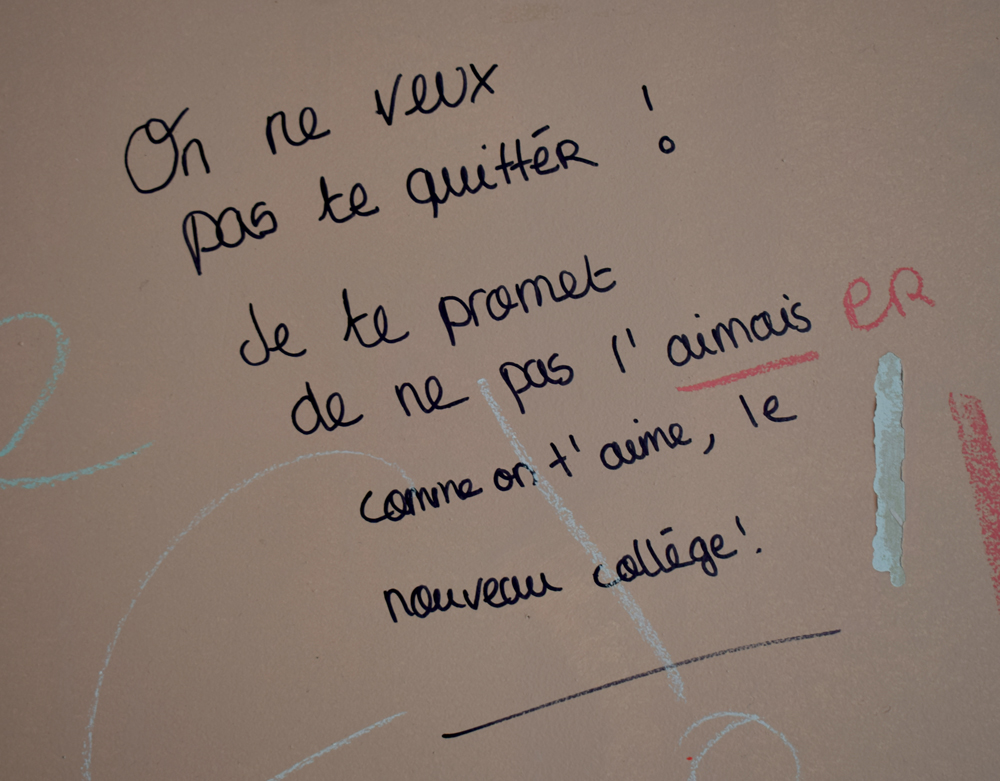 On ne veux
pas te quittér !
Je te promet
de ne pas l'aimais eR
comme on t'aime, le
nouveau collége !